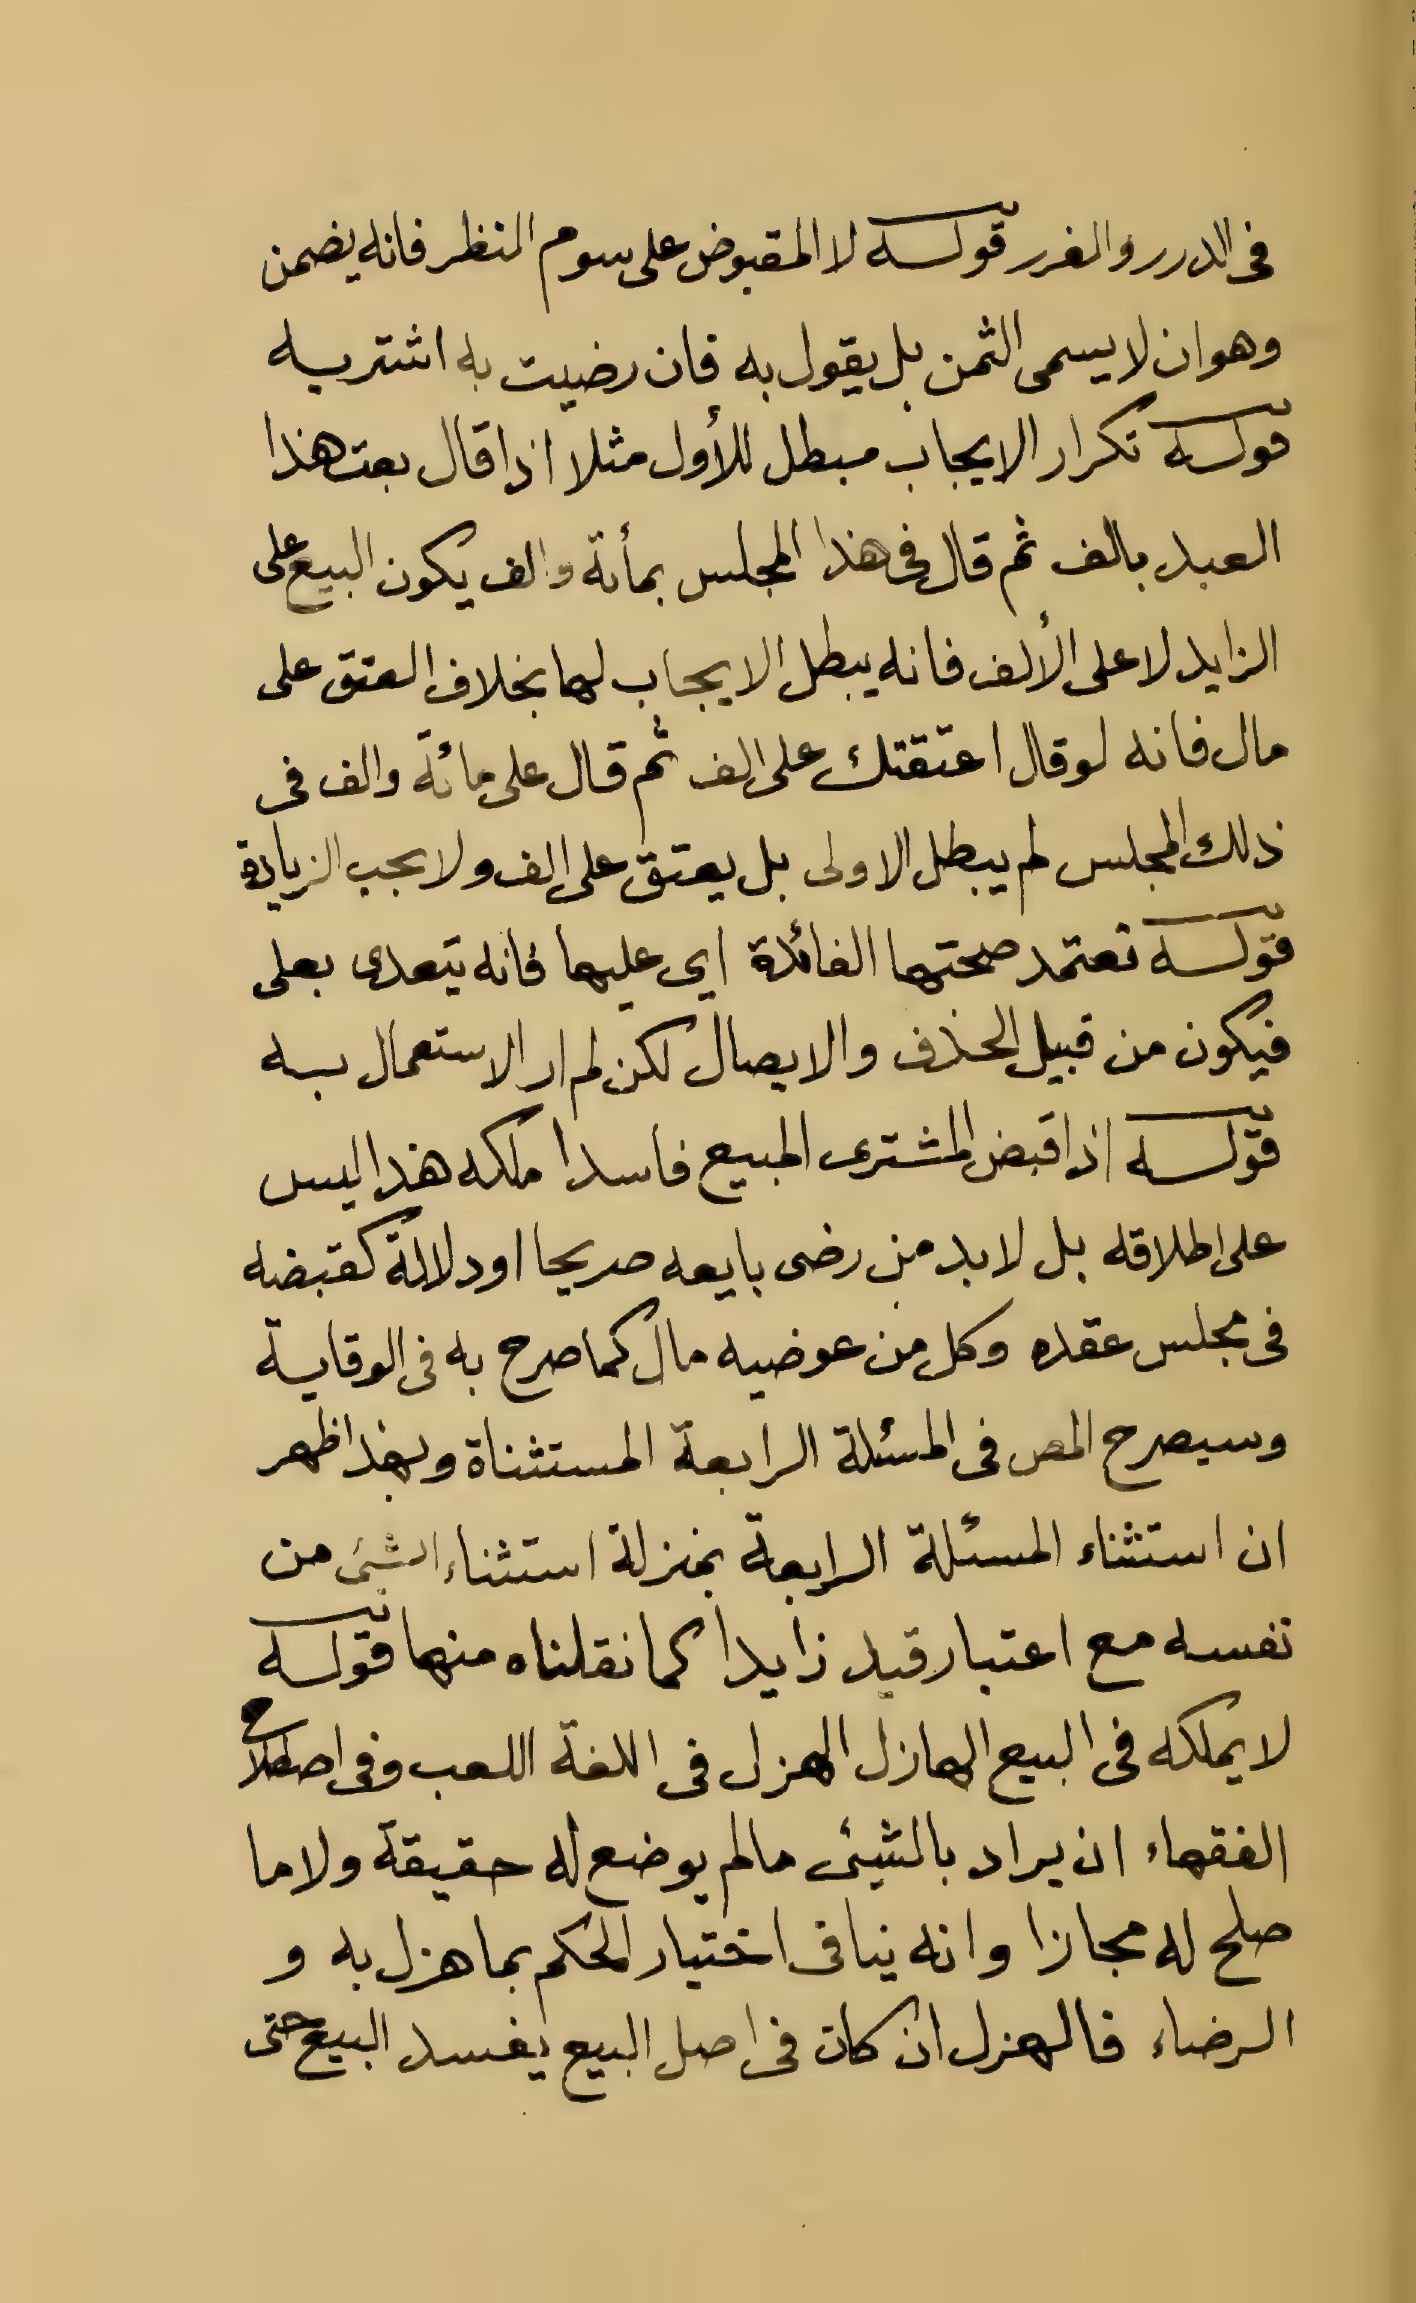 فى الدرر والغرر قولــه لا المقبوض على سوم النظر فانه يضمن
وهو ان لا يسمى الثمن بل يقول به فان رضيت به اشتريه
قولــه تكرار الايجاب مبطل للأول مثلا اذا قال بعت هذا
العبد بالف ثم قال فى هذا المجلس بمأئة والف يكون البيع على
الزايد لا على الألف فانه يبطل الايجاب لهما بخلاف العتق على
مال فانه لو قال اعتقتك على الف ثم قال على مائة والف فى
ذلك المجلس لم يبطل الاولى بل يعتق على الف ولا يجب الزيادة
قولــه تعتمد صحتها الفائدة اى عليها فانه يتعدى بعلى
فيكون من قبيل الحذف والايصال لكن لم ار الاستعمال بــه
قولــه اذا قبض المشترى المبيع فاسدا ملكه هذا ليس
على اطلاقه بل لا بد من رضى بايعه صريحا او دلالة كقبضه
فى مجلس عقده وكل من عوضيه مال كما صرح به فى الوقاية
وسيصرح المص فى المسئلة الرابعة المستثناة وبهذا ظهر
ان استثناء المسئلة الرابعة بمنزلة استثناء الشئى من
نفسه مع اعتبار قيد زايدا كما نقلناه منهما قولــه
لا يملكه فى البيع الهازل الهزل فى اللغة اللعب وفى اصطلاح
الفقهاء ان يراد بالشيئى مالم يوضع له حقيقة ولا ما
صلح له مجازا وانه ينافى اختيار الحكم بما هزل به و
الرضاء فالهزل ان كان فى اصل البيع يفسد البيع حتى